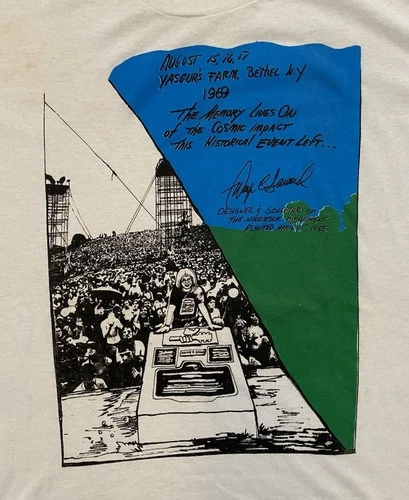 AUGUST 15, 16, 17
YASGUR'S FARM, BETHEL N.Y.
1969
THE MEMORY LIVES ON
OF THE COSMIC IMPACT
THIS HISTORICAL EVENT LEFT...
Wayne C Saward
DESIGNER & SCULPTOR OF
THE WOODSTOCK MONUMENT
PLANTED APRIL 1985